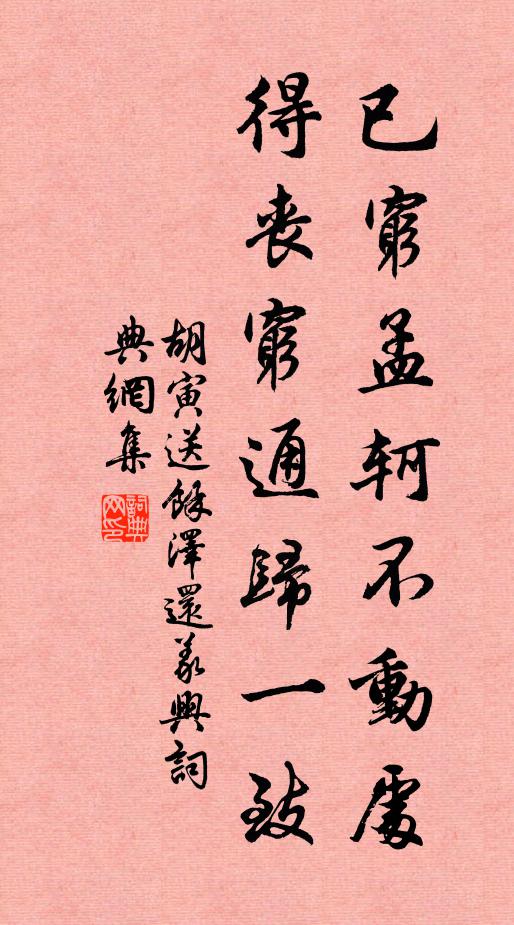 已窮孟軻不動處
得喪窮通歸一致
胡寅送餘澤還義興詞
典網集
詞典网印